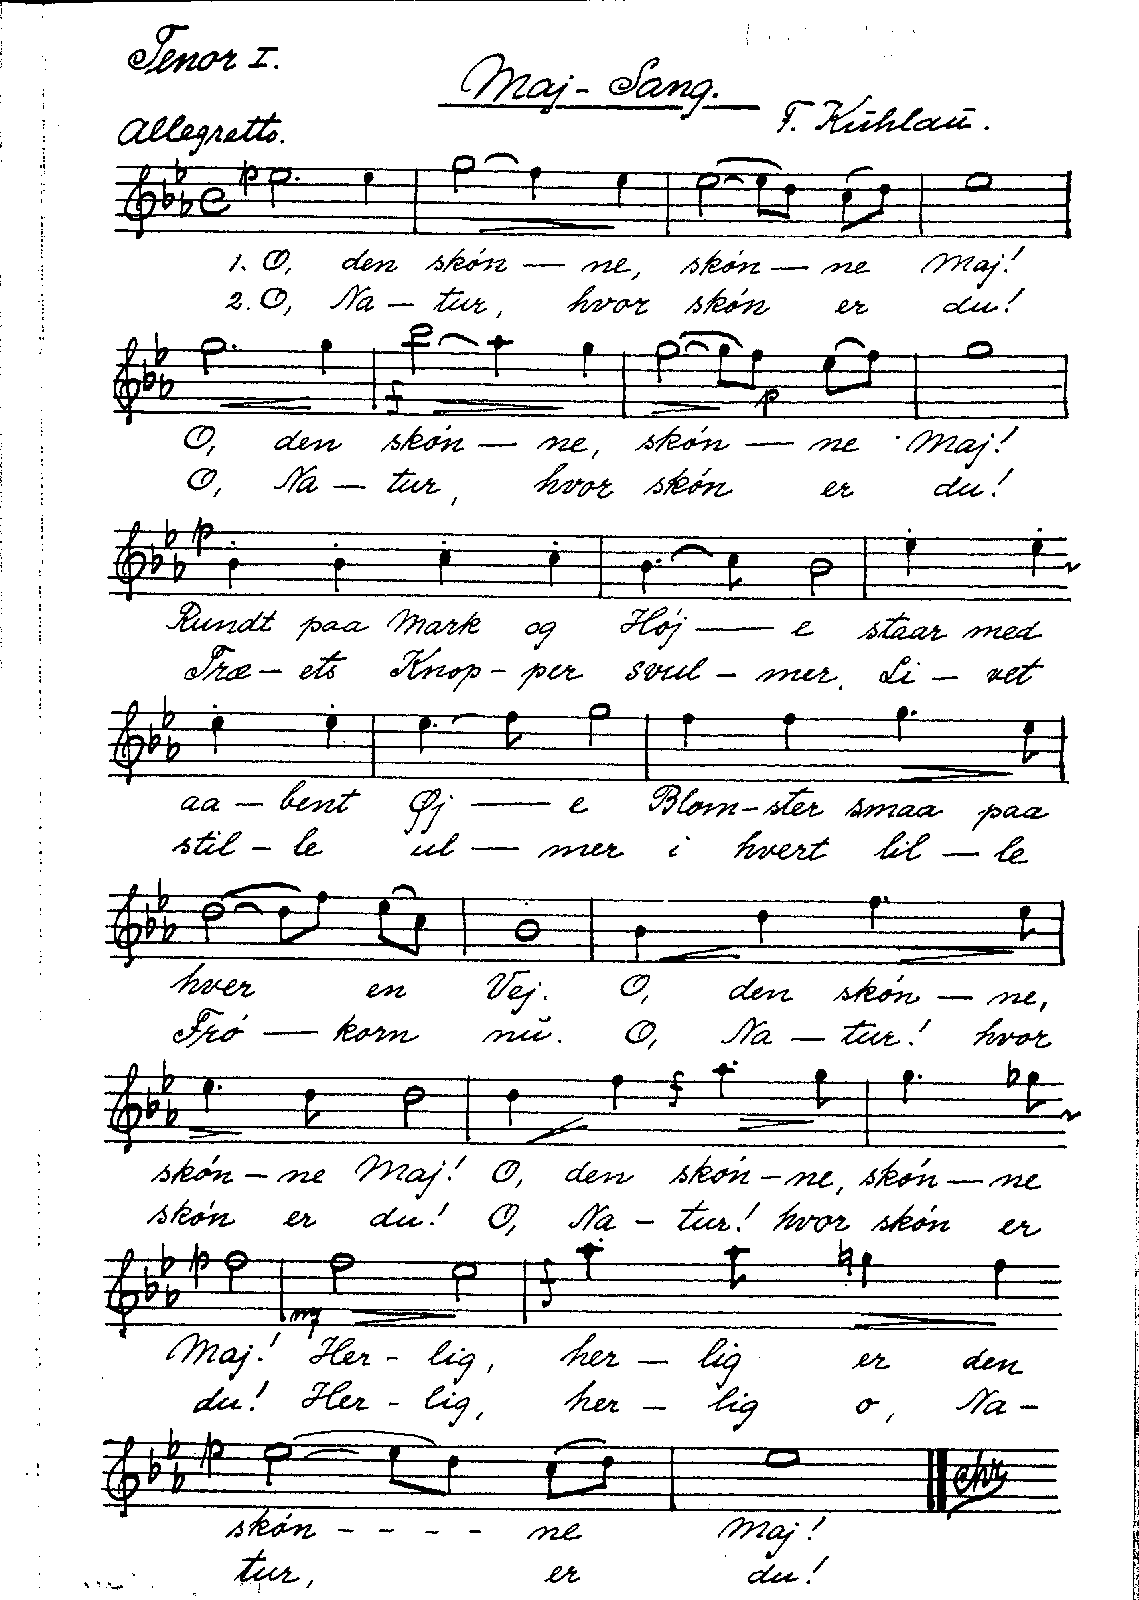 Tenor I.
Maj-Sang.
F. Kuhlau.
Allegretto.
p
1. O, den skón — ne, skón — ne Maj!
2. O, Na — tur, hvor skón er du!
f p
O, den skón — ne, skón — ne Maj!
O, Na — tur, hvor skón er du!
p
Rundt paa Mark og Hój — e staar med
Træ — ets Knop - per svul - mer. Li — vet
aa — bent Øj — e Blom - ster smaa paa
stil - le ul — mer i hvert lil — le
hver en Vej. O, den skón — ne,
Fró — korn nu. O, Na — tur! hvor
f
skón — ne Maj! O, den skón - ne, skón — ne
skón er du! O, Na - tur! hvor skón er
p mf f
Maj! Her - lig, her — lig er den
du! Her - lig, her — lig o, Na -
p
skón - - - - ne Maj!
tur, er du!